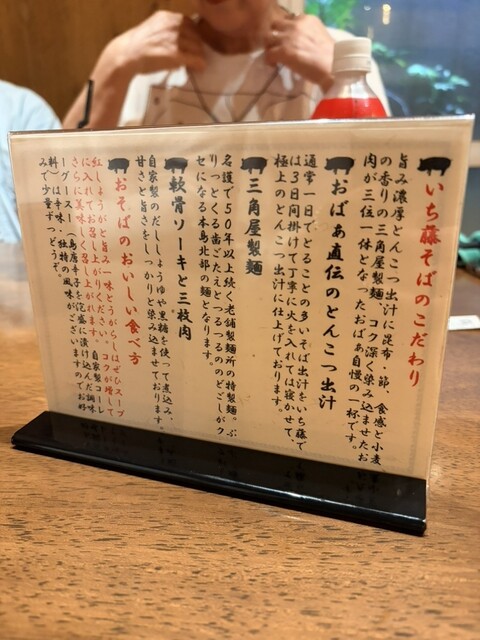 いち藤そばのこだわり
旨み濃厚とんこつ出汁に昆布・節、食感と小麦
の香りの三角屋製麺、コク深く染み込ませたお
肉が三位一体となったおばぁ自慢の一杯です。
おばぁ直伝のとんこつ出汁
通常一日でとることの多いそば出汁をいち藤で
は3日間掛けて丁寧に火を入れては寝かせて、
極上のとんこつ出汁に仕上げております。
三角屋製麺
名護で50年以上続く老舗製麺所の特製麺。ぷ
りっとくる歯ごたえとつるっつるののどごしがク
セになる本島北部の麺となります。
軟骨ソーキと三枚肉
自家製のだししょうゆや黒糖を使って煮込み、
甘さと旨さをしっかりと染み込ませております。
おそばのおいしい食べ方
紅しょうがと旨み一味とうがらしはぜひスープ
に入れてお召し上がりください。コクが増して
さらに美味しく召し上がれます。自家製コーレ
ーグース（島唐辛子を泡盛に漬け込んだ調味
料）は辛味・独特の風味がございますのでお好
みで少量ずつどうぞ。